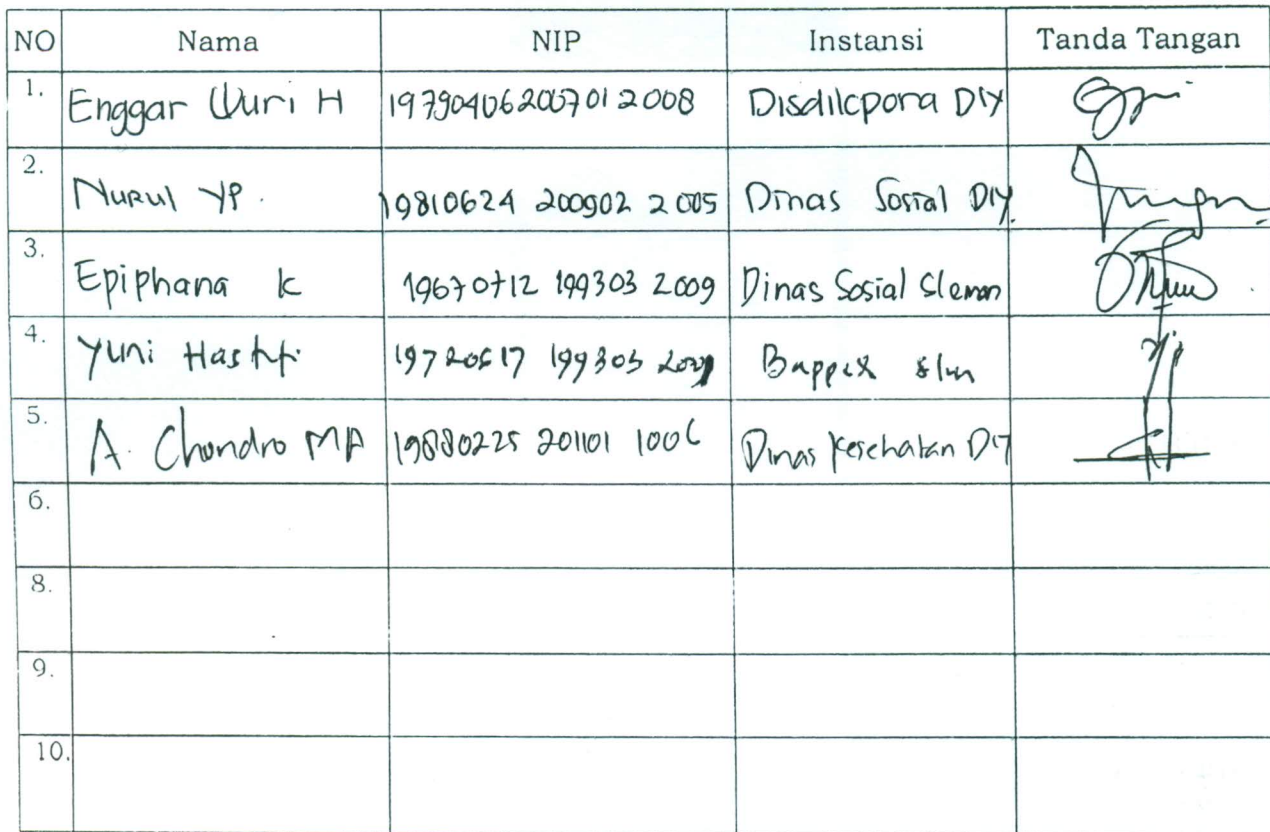 NO Nama NIP Instansi Tanda Tangan
1. Enggar Wuri H 197904062007012008 Disdikpora DIY
2. Nurul YP. 19810624 200902 2 005 Dinas Sosial DIY.
3. Epiphana K 19670712 199303 2009 Dinas Sosial Sleman
4. Yuni 199303
5. A. Chondro MP 19880225 201101 1006 Dinas Kesehatan DIY
6.
8.
9.
10.